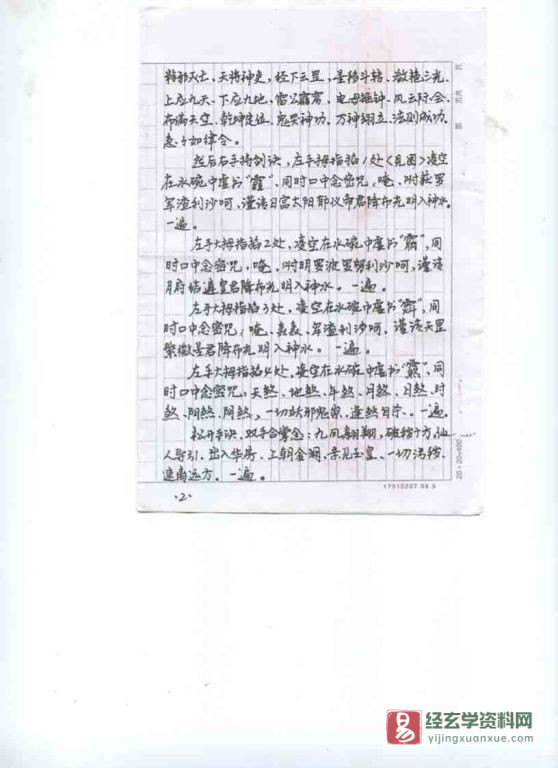 天将神吏,径下云里,星移斗转,激艳三光,
上应九天、下应九地、雷公霹雳、电母 风云际会、
布满天空、乾坤 鬼哭神功、万神翊立、法则成功,
急々如律令。
然后右手掐剑诀,左手拇指掐1处(见图)凌空
在水碗中虚书“霾”、同时口中念密咒:唵、
军渣利沙呵,谨请日宫太阳 帝君降布光明入神水。
一遍。
左手大拇指掐2处,凌空在水碗中虚书 同
时口中念密咒:唵、 明罗波罗努利沙呵,谨请
月府 皇君降布光明入神水。一遍。
左手大拇指掐3处,凌空在水碗中虚书 同
时口中念密咒:唵、 军渣利沙呵、谨请天罡
紫微星君降布光明入神水。一遍。
左手大拇指掐4处,凌空在水碗中虚书 同
时口中念密咒:天煞、地煞、年煞、月煞、日煞、时
煞、阴煞、阴煞,一切妖邪鬼祟,逢煞自亡、一遍。
松开手诀,双手合掌念:九凤翱翔,破秽十方,仙
人导引、出入华房、上朝金阙,亲见玉皇、一切污秽、
速离远方。一遍。
·2·
17010207.98.9
20×20=400
页
第 页
经玄学资料网
yijingxuanxue.com
易